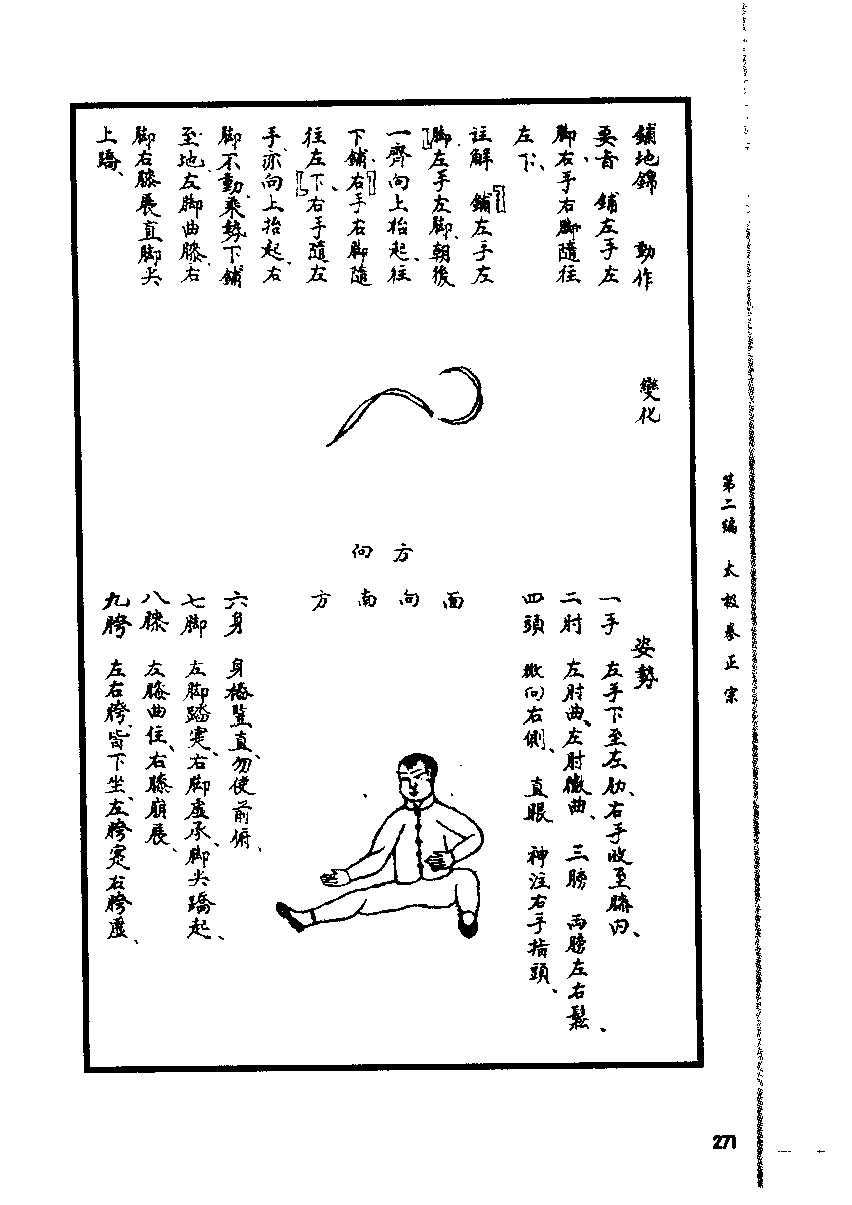 鋪地錦　動作
要旨　鋪左手左
脚、右手右脚隨往
左下、
註解　鋪左手左
脚左手左脚、朝後
一齊向上抬起、往
下鋪、右手右脚隨
往左下、右手隨左
手、亦向上抬起、右
脚不動、乘勢下鋪
至地、左脚曲膝、右
脚右膝展直、脚尖
上蹻、
變化
方向
面向南方
姿勢
一手　左手下至左肋、右手收至膝内、
二肘　左肘曲、左肘微曲、　三膀　兩膀左右鬆、
四頭　微向右側、　直眼　神注右手指頭、
六身　身樁豎直、勿使前俯、
七脚　左脚踏寔、右脚虛承、脚尖蹻起、
八膝　左膝曲住、右膝崩展、
九胯　左右胯、皆下坐、左胯寔右胯虛、
第二编　太极拳正宗
271